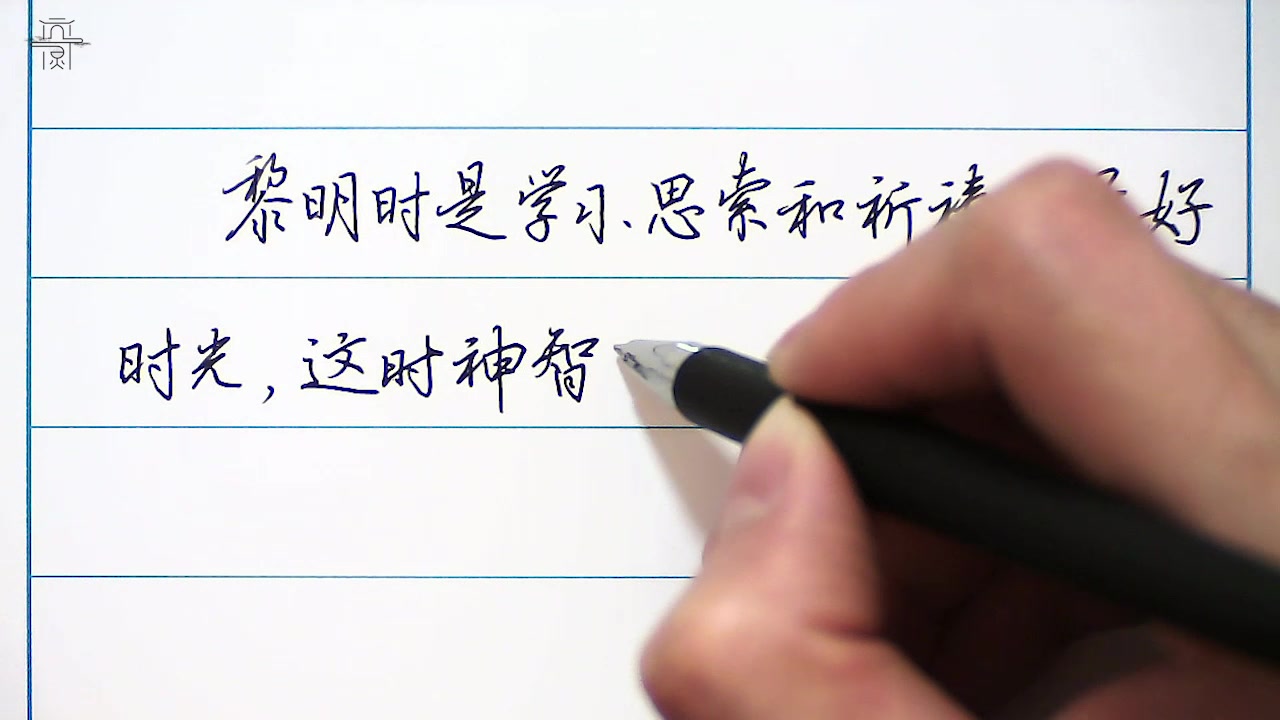 黎明时是学习、思索和祈祷 好
时光，这时神智